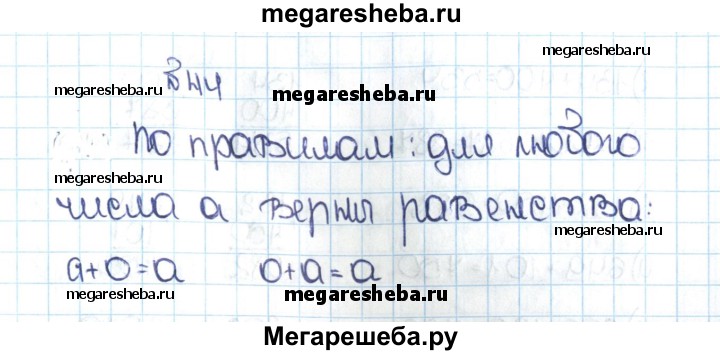 megaresheba.ru
megaresheba.ru
megaresheba.ru
megaresheba.ru
По правилам: для любого
megaresheba.ru
числа a верны равенства:
megaresheba.ru
a+0=a 0+a=a
megaresheba.ru
megaresheba.ru
Мегарешеба.ру